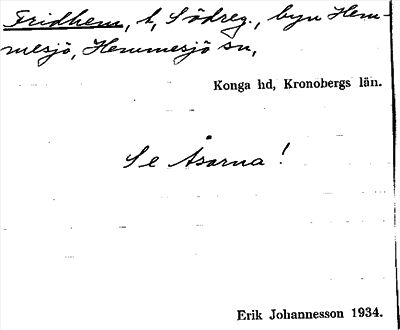 Fridhem, t, Södreg., byn Hem-
mesjö, Hemmesjö sn,
Konga hd, Kronobergs län.
Se Åsarna!
Erik Johannesson 1934.